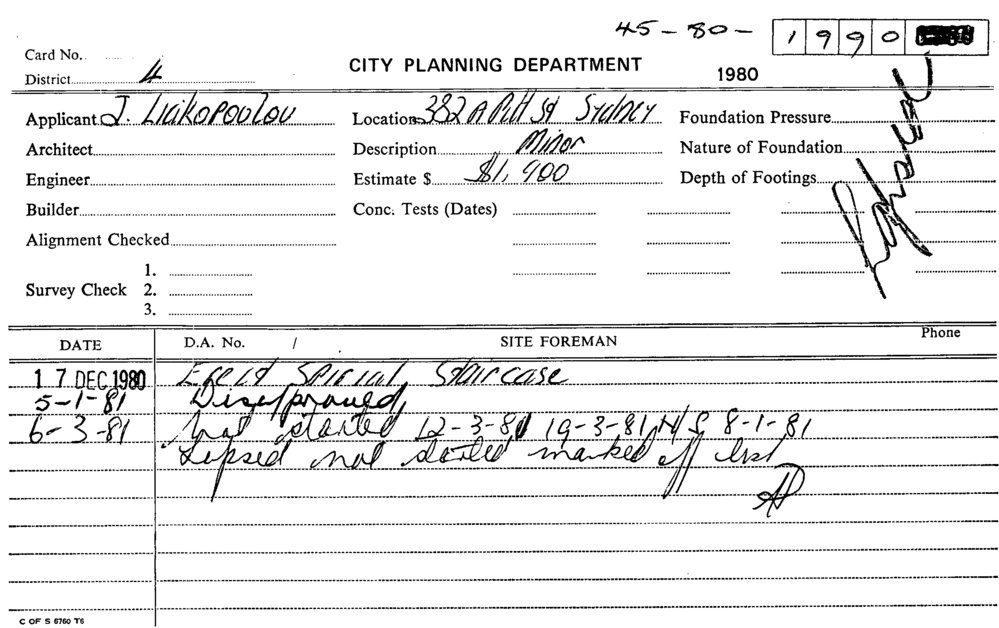 45-80- 1990
Card No.
District 4
CITY PLANNING DEPARTMENT
1980
Applicant J. Liakopoulou
Location 382A Pitt St Sydney
Foundation Pressure
Architect
Description Minor
Nature of Foundation
Engineer
Estimate $ $1,900
Depth of Footings
Builder
Conc. Tests (Dates)
Alignment Checked
Survey Check
1.
2.
3.
Lapsed
DATE
D.A. No. /
SITE FOREMAN
Phone
17 DEC 1980 Erect Spicial Staircase
5-1-81 Disapproved
6-3-81 Not started 12-3-81 19-3-81 N/S 8-1-81
Lapsed not started marked off list
C OF S 6760 T6